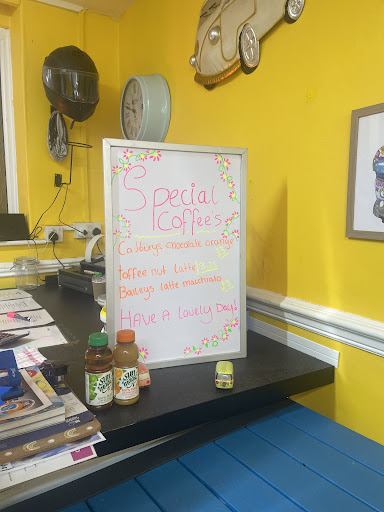 Special
Coffee's
Cadburys chocolate orange
toffee nut latte
Baileys latte macchiato
HAVE A Lovely Day!